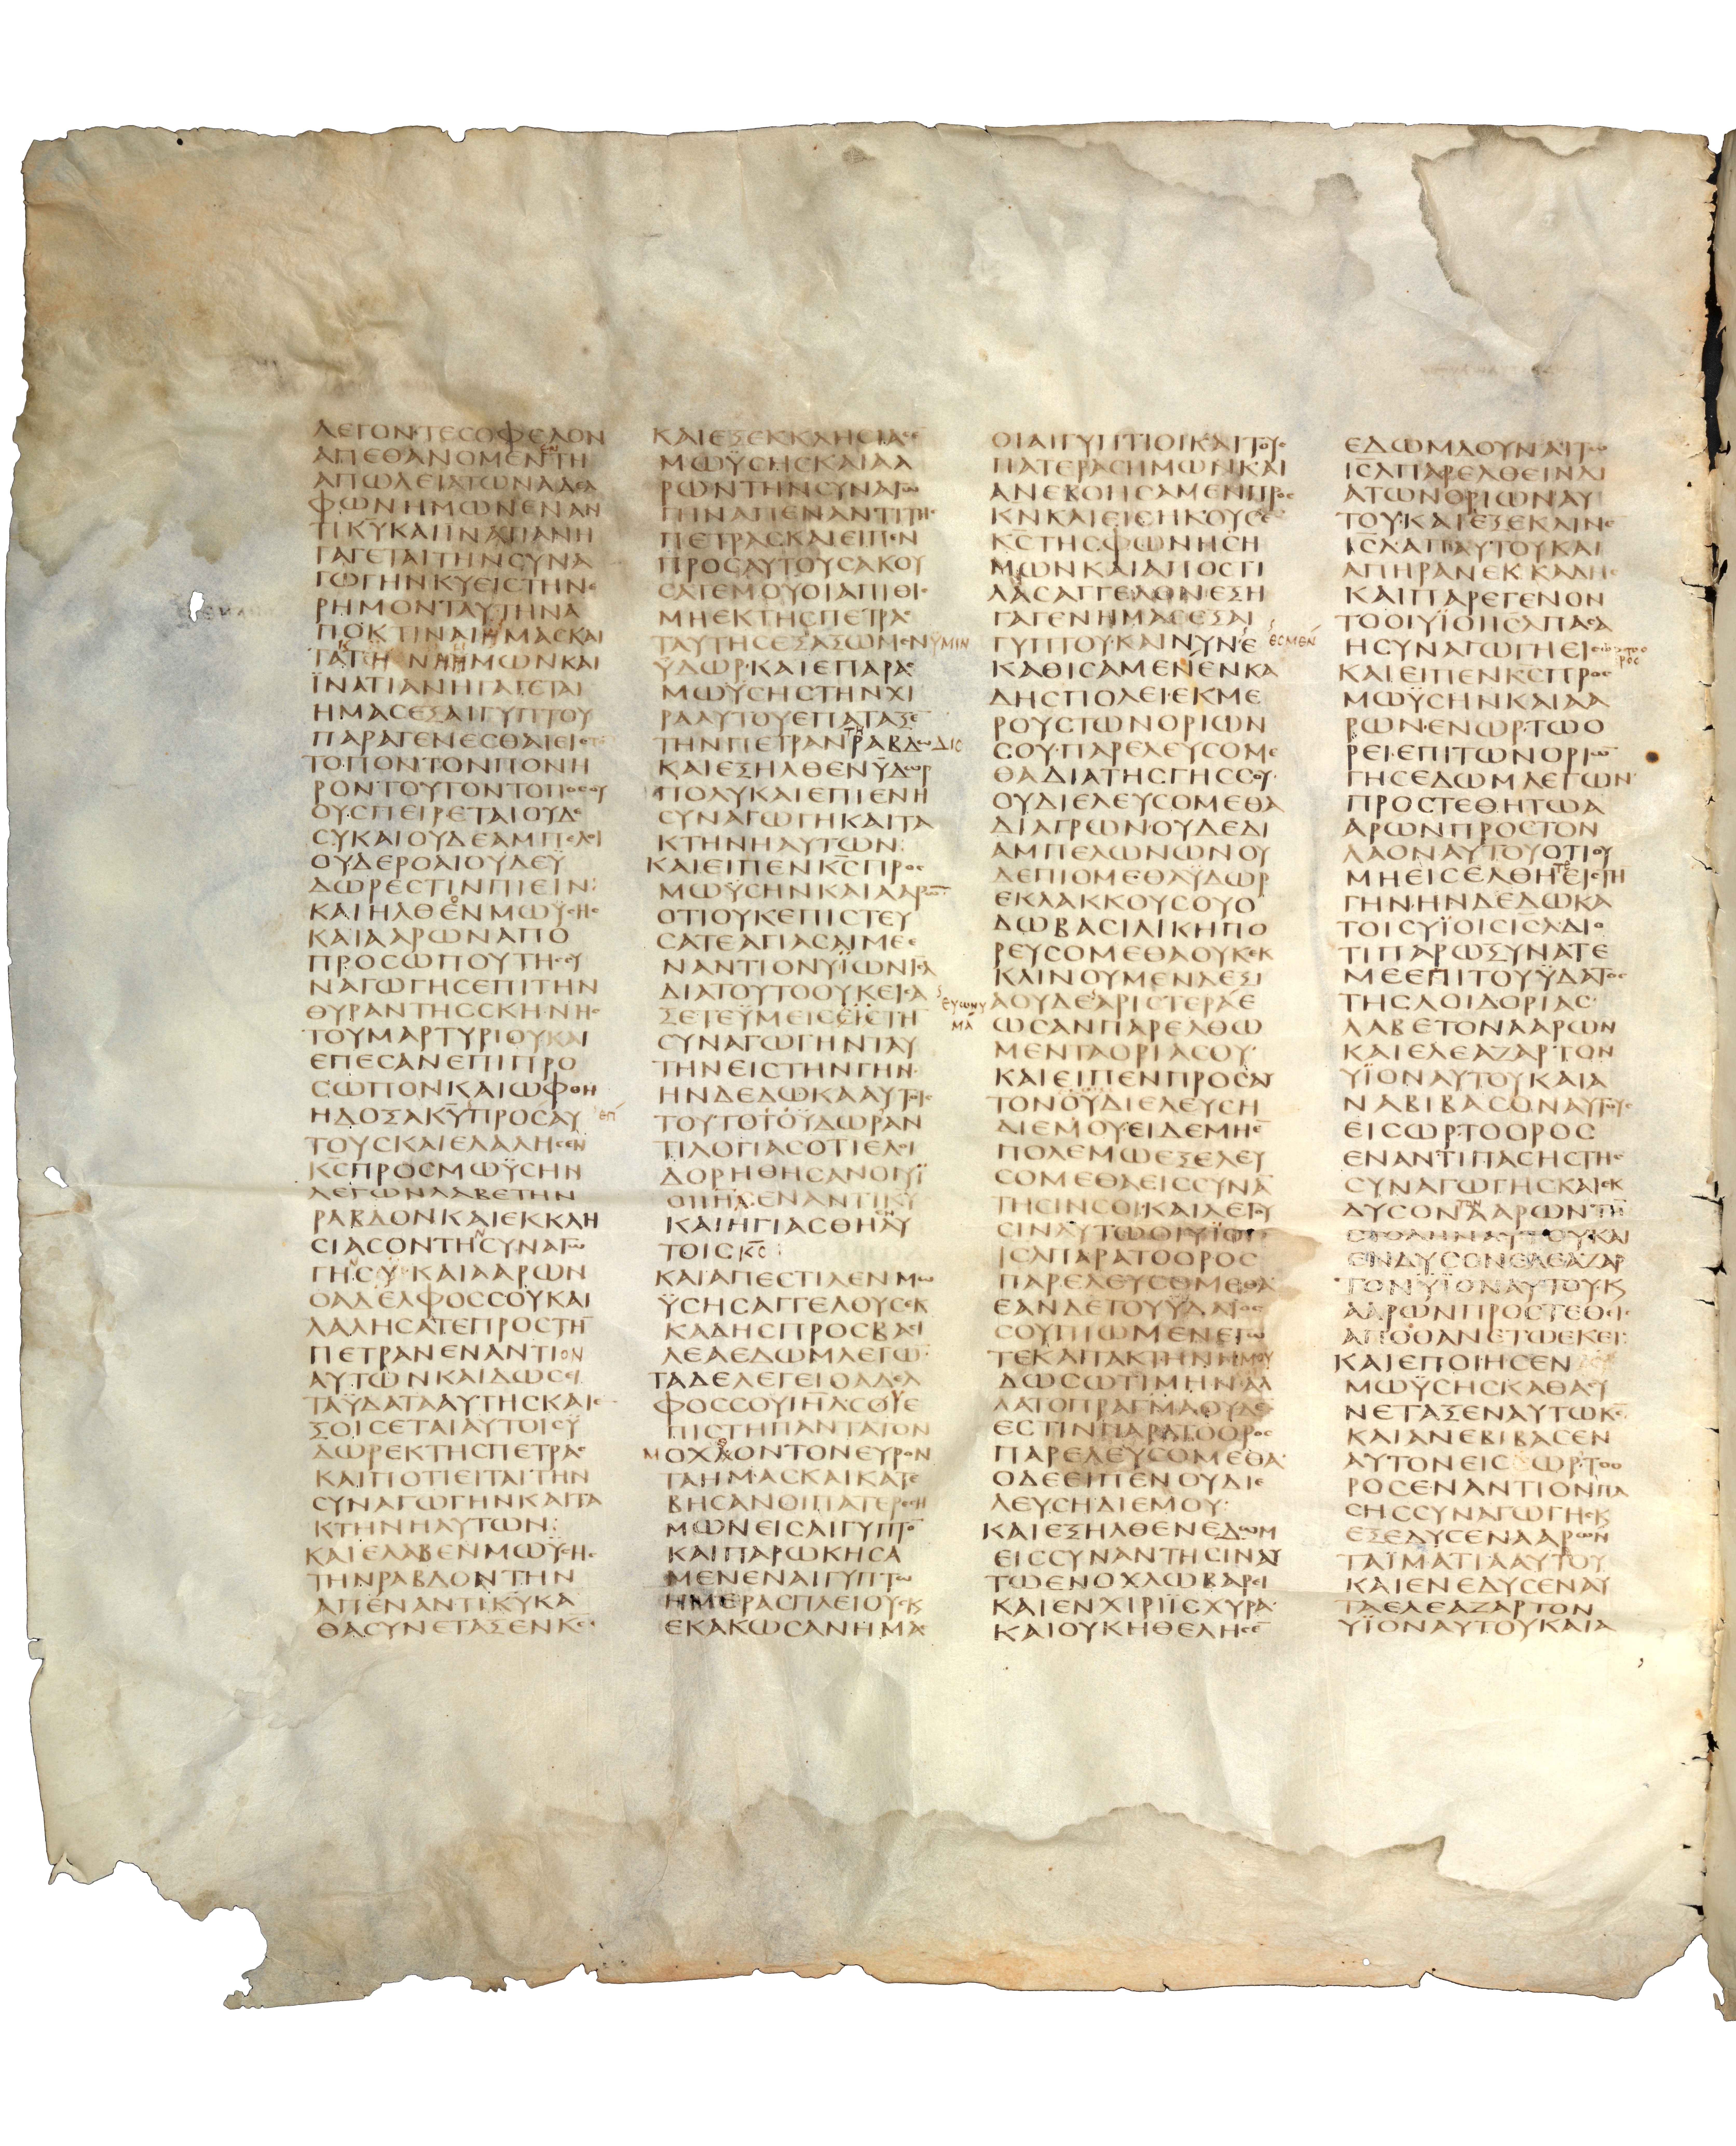 ΛΕΓΟΝΤΕϹΟΦΕΛΟΝ
ΑΠΕΘΑΝΟΜΕΝΤΗ
ΑΠΩΛΕΙΑΤΩΝΑΔΕΛ
ΦΩΝΗΜΩΝΕΝΑΝ
ΤΙΚΥΚΑΙΙΝΑΤΙΑΝΗ
ΓΑΓΕΤΑΙΤΗΝϹΥΝΑ
ΓΩΓΗΝΚΥΕΙϹΤΗΝΕ
ΡΗΜΟΝΤΑΥΤΗΝΑ
ΠΟΚΤΙΝΑΙΗΜΑϹΚΑΙ
ΗΜΩΝΚΑΙ
ΪΝΑΤΙΑΝΗΓΑΓΕΤΑΙ
ΗΜΑϹΕΞΑΙΓΥΠΤΟΥ
ΠΑΡΑΓΕΝΕϹΘΑΙΕΙϹ
ΤΟΠΟΝΤΟΝΠΟΝΗ
ΡΟΝΤΟΥΤΟΝΤΟΠΟϹΟΥ
ΟΥϹΠΕΙΡΕΤΑΙΟΥΔΕ
ϹΥΚΑΙΟΥΔΕΑΜΠΕΛΟΙ
ΟΥΔΕΡΟΑΙΟΥΔΕΫ
ΔΩΡΕϹΤΙΝΠΙΕΙΝ:
ΚΑΙΗΛΘΕΝΜΩΫϹΗϹ
ΚΑΙΑΑΡΩΝΑΠΟ
ΠΡΟϹΩΠΟΥΤΗϹϹΥ
ΝΑΓΩΓΗϹΕΠΙΤΗΝ
ΘΥΡΑΝΤΗϹϹΚΗΝΗϹ
ΤΟΥΜΑΡΤΥΡΙΟΥΚΑΙ
ΕΠΕϹΑΝΕΠΙΠΡΟ
ϹΩΠΟΝΚΑΙΩΦΘΗ
ΗΔΟΞΑΚΥΠΡΟϹΑΥ
ΤΟΥϹΚΑΙΕΛΑΛΗϹΕΝ
ΚϹΠΡΟϹΜΩΫϹΗΝ
ΛΕΓΩΝΛΑΒΕΤΗΝ
ΡΑΒΔΟΝΚΑΙΕΚΚΛΗ
ϹΙΑϹΟΝΤΗϹΥΝΑΓΩ
ΓΗϹΫΚΑΙΑΑΡΩΝ
ΟΑΔΕΛΦΟϹϹΟΥΚΑΙ
ΛΑΛΗϹΑΤΕΠΡΟϹΤΗ
ΠΕΤΡΑΝΕΝΑΝΤΙΟΝ
ΑΥΤΩΝΚΑΙΔΩϹΕΙ
ΤΑΫΔΑΤΑΑΥΤΗϹΚΑΙΕ
ΞΟΙϹΕΤΑΙΑΥΤΟΙϹΫ
ΔΩΡΕΚΤΗϹΠΕΤΡΑϹ
ΚΑΙΠΟΤΙΕΙΤΑΙΤΗΝ
ϹΥΝΑΓΩΓΗΝΚΑΙΤΑ
ΚΤΗΝΗΑΥΤΩΝ:
ΚΑΙΕΛΑΒΕΝΜΩΫϹΗϹ
ΤΗΝΡΑΒΔΟΝΤΗΝ
ΑΠΕΝΑΝΤΙΚΥΚΑ
ΘΑϹΥΝΕΤΑΞΕΝΚϹ
ΚΑΙΕΞΕΚΚΛΗϹΙΑϹΕ
ΜΩΫϹΗϹΚΑΙΑΑ
ΡΩΝΤΗΝϹΥΝΑΓΩ
ΓΗΝΑΠΕΝΑΝΤΙΤΗϹ
ΠΕΤΡΑϹΚΑΙΕΙΠΕΝ
ΠΡΟϹΑΥΤΟΥϹΑΚΟΥ
ϹΑΤΕΜΟΥΟΙΑΠΙΘΙϹ
ΜΗΕΚΤΗϹΠΕΤΡΑϹ
ΤΑΥΤΗϹΕΞΑΞΩΜΕΝΥΜΙΝ
ΫΔΩΡ·ΚΑΙΕΠΑΡΑϹ
ΜΩΫϹΗϹΤΗΝΧΙ
ΡΑΑΥΤΟΥΕΠΑΤΑΞΕ
ΤΗΝΠΕΤΡΑΝΤΗΡΑΒΔΩΔΙϹ
ΚΑΙΕΞΗΛΘΕΝΫΔΩΡ
ΠΟΛΥΚΑΙΕΠΙΕΝΗ
ϹΥΝΑΓΩΓΗΚΑΙΤΑ
ΚΤΗΝΗΑΥΤΩΝ:
ΚΑΙΕΙΠΕΝΚϹΠΡΟϹ
ΜΩΫϹΗΝΚΑΙΑΑΡΩ
ΟΤΙΟΥΚΕΠΙϹΤΕΥ
ϹΑΤΕΑΓΙΑϹΑΙΜΕΕ
ΝΑΝΤΙΟΝΫΙΩΝΙϹΛ
ΔΙΑΤΟΥΤΟΟΥΚΕΙϹΑ
ΞΕΤΕΫΜΕΙϹΕΙϹΤΗ
ϹΥΝΑΓΩΓΗΝΤΑΥ
ΤΗΝΕΙϹΤΗΝΓΗΝ
ΗΝΔΕΔΩΚΑΑΥΤΟΙϹ
ΤΟΥΤΟΤΟΫΔΩΡΑΝ
ΤΙΛΟΓΙΑϹΟΤΙΕΛΟΙ
ΔΟΡΗΘΗϹΑΝΟΙΫΪ
ΟΙΙΗΛΕΝΑΝΤΙΚΥ
ΚΑΙΗΓΙΑϹΘΗΕΝΑΥ
ΤΟΙϹΚϹ:
ΚΑΙΑΠΕϹΤΙΛΕΝΜΩ
ΫϹΗϹΑΓΓΕΛΟΥϹΕΚ
ΚΑΔΗϹΠΡΟϹΒΑϹΙ
ΛΕΑΕΔΩΜΛΕΓΩ
ΤΑΔΕΛΕΓΕΙΟΑΔΕΛ
ΦΟϹϹΟΥΙΗΛϹΟΥΕ
ΠΙϹΤΗΠΑΝΤΑΤΟΝ
ΜΟΧΘΟΝΤΟΝΕΥΡΟΝ
ΤΑΗΜΑϹΚΑΙΚΑΤΕ
ΒΗϹΑΝΟΙΠΑΤΕΡΕϹΗ
ΜΩΝΕΙϹΑΙΓΥΠΤΟ
ΚΑΙΠΑΡΩΚΗϹΑ
ΜΕΝΕΝΑΙΓΥΠΤΩ
ΗΜΕΡΑϹΠΛΕΙΟΥϹΚ
ΕΚΑΚΩϹΑΝΗΜΑϹ
ΟΙΑΙΓΥΠΤΙΟΙΚΑΙΤΟΥϹ
ΠΑΤΕΡΑϹΗΜΩΝΚΑΙ
ΑΝΕΒΟΗϹΑΜΕΝΠΡΟϹ
ΚΝΚΑΙΕΙϹΗΚΟΥϹΕ
ΚϹΤΗϹΦΩΝΗϹΗ
ΜΩΝΚΑΙΑΠΟϹΤΙ
ΛΑϹΑΓΓΕΛΟΝΕΞΗ
ΓΑΓΕΝΗΜΑϹΕΞΑΙ
ΓΥΠΤΟΥ·ΚΑΙΝΥΝΕ ΕϹΜΕΝ
ΚΑΘΙϹΑΜΕΝΕΝΚΑ
ΔΗϹΠΟΛΕΙ·ΕΚΜΕ
ΡΟΥϹΤΩΝΟΡΙΩΝ
ϹΟΥ·ΠΑΡΕΛΕΥϹΟΜΕ
ΘΑΔΙΑΤΗϹΓΗϹϹΟΥ·
ΟΥΔΙΕΛΕΥϹΟΜΕΘΑ
ΔΙΑΓΡΩΝ·ΟΥΔΕΔΙ
ΑΜΠΕΛΩΝΩΝΟΥ
ΔΕΠΙΟΜΕΘΑΫΔΩΡ
ΕΚΛΑΚΚΟΥϹΟΥΟ
ΔΩΒΑϹΙΛΙΚΗΠΟ
ΡΕΥϹΟΜΕΘΑΟΥΚΕΚ
ΚΛΙΝΟΥΜΕΝΔΕΞΙ
ΕΥΩΝΥΜΑ ΑΟΥΔΕΑΡΙϹΤΕΡΑΕ
ΩϹΑΝΠΑΡΕΛΘΩ
ΜΕΝΤΑΟΡΙΑϹΟΥ·
ΚΑΙΕΙΠΕΝΠΡΟϹΑΥ
ΤΟΝΟΫΔΙΕΛΕΥϹΗ
ΔΙΕΜΟΥ·ΕΙΔΕΜΗΕ
ΠΟΛΕΜΩΕΞΕΛΕΥ
ϹΟΜΕΘΑΕΙϹϹΥΝΑ
ΤΗϹΙΝϹΟΙ·ΚΑΙΛΕΓΟΥ
ϹΙΝΑΥΤΩΟΙΥΪΟΙ
ΙϹΛΠΑΡΑΤΟΟΡΟϹ
ΠΑΡΕΛΕΥϹΟΜΕΘΑ
ΕΑΝΔΕΤΟΥΫΔΑΤΟϹ
ϹΟΥΠΙΩΜΕΝΕΓΩ
ΤΕΚΑΙΤΑΚΤΗΝΗΜΟΥ
ΔΩϹΩΤΙΜΗΝΑΛ
ΛΑΤΟΠΡΑΓΜΑΟΥΔΕ
ΕϹΤΙΝΠΑΡΑΤΟΟΡΟϹ
ΠΑΡΕΛΕΥϹΟΜΕΘΑ·
ΟΔΕΕΙΠΕΝΟΥΔΙΕ
ΛΕΥϹΗΔΙΕΜΟΥ:
ΚΑΙΕΞΗΛΘΕΝΕΔΩΜ
ΕΙϹϹΥΝΑΝΤΗϹΙΝΑΥ
ΤΩΕΝΟΧΛΩΒΑΡΕΙ
ΚΑΙΕΝΧΙΡΙΪϹΧΥΡΑ·
ΚΑΙΟΥΚΗΘΕΛΗϹΕ
ΕΔΩΜΔΟΥΝΑΙΤΩ
ΙϹΛΠΑΡΕΛΘΕΙΝΔΙ
ΑΤΩΝΟΡΙΩΝΑΥ
ΤΟΥ·ΚΑΙΕΞΕΚΛΙΝΕ
ΙϹΛΑΠΑΥΤΟΥΚΑΙ
ΑΠΗΡΑΝΕΚΚΑΔΗϹ
ΚΑΙΠΑΡΕΓΕΝΟΝ
ΤΟΟΙΥΪΟΙΙϹΛΠΑϹΑ
ΗϹΥΝΑΓΩΓΗΕΙϹΩΡΤΟΟΡΟϹ
ΚΑΙΕΙΠΕΝΚϹΠΡΟϹ
ΜΩΫϹΗΝΚΑΙΑΑ
ΡΩΝ·ΕΝΩΡ·ΤΩΟ
ΡΕΙ·ΕΠΙΤΩΝΟΡΙΩ
ΓΗϹΕΔΩΜΛΕΓΩΝ·
ΠΡΟϹΤΕΘΗΤΩΑ
ΑΡΩΝΠΡΟϹΤΟΝ
ΛΑΟΝΑΥΤΟΥΟΤΙΟΥ
ΜΗΕΙϹΕΛΘΗΤΕΕΙϹΤΗ
ΓΗΝ·ΗΝΔΕΔΩΚΑ
ΤΟΙϹΥΪΟΙϹΙϹΛ·ΔΙΟ
ΤΙΠΑΡΩΞΥΝΑΤΕ
ΜΕΕΠΙΤΟΥΫΔΑΤΟϹ
ΤΗϹΛΟΙΔΟΡΙΑϹ·
ΛΑΒΕΤΟΝΑΑΡΩΝ
ΚΑΙΕΛΕΑΖΑΡΤΟΝ
ΥΪΟΝΑΥΤΟΥΚΑΙΑ
ΝΑΒΙΒΑϹΟΝΑΥΤΟΥϹ
ΕΙϹΩΡ·ΤΟΟΡΟϹ
ΕΝΑΝΤΙΠΑϹΗϹΤΗϹ
ϹΥΝΑΓΩΓΗϹΚΑΙΕΚ
ΔΥϹΟΝΤΟΝΑΑΡΩΝΤΗ
ϹΤΟΛΗΝΑΥΤΟΥΚΑΙ
ΕΝΔΥϹΟΝΕΛΕΑΖΑΡ
ΤΟΝΥΪΟΝΑΥΤΟΥ·Κ
ΑΑΡΩΝΠΡΟϹΤΕΘΕΙϹ
ΑΠΟΘΑΝΕΤΩΕΚΕΙ:
ΚΑΙΕΠΟΙΗϹΕΝ
ΜΩΫϹΗϹΚΑΘΑϹΥ
ΝΕΤΑΞΕΝΑΥΤΩΚϹ
ΚΑΙΑΝΕΒΙΒΑϹΕΝ
ΑΥΤΟΝΕΙϹΩΡ·ΤΟΟ
ΡΟϹΕΝΑΝΤΙΟΝΠΑ
ϹΗϹϹΥΝΑΓΩΓΗϹΚ
ΕΞΕΔΥϹΕΝΑΑΡΩΝ
ΤΑΪΜΑΤΙΑΑΥΤΟΥ
ΚΑΙΕΝΕΔΥϹΕΝΑΥ
ΤΑΕΛΕΑΖΑΡΤΟΝ
ΥΪΟΝΑΥΤΟΥΚΑΙΑ